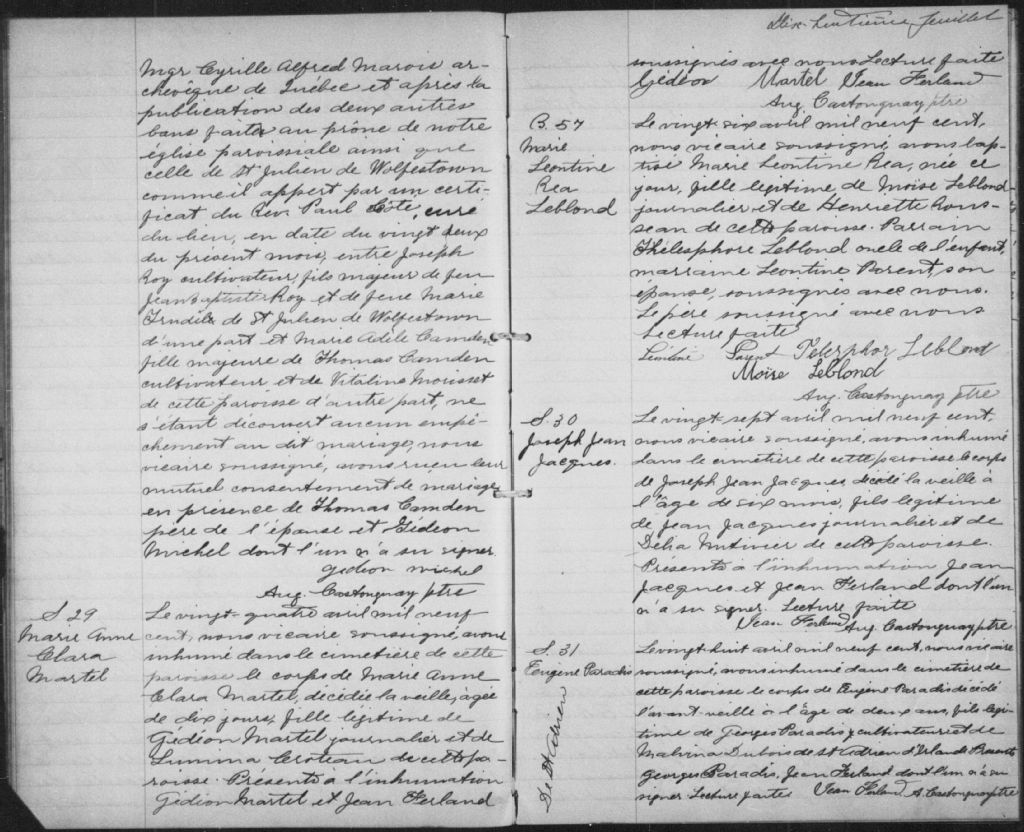 Mgr Cyrille Alfred Marois ar-
chevêque de Québec et après la
publication des deux autres
bans faite au prône de notre
église paroissiale ainsi que
celle de St Julien de Wolfestown
comme il appert par un certi-
ficat du Rev. Paul Côté, curé
du lieu, en date du vingt deux
du présent mois, entre Joseph
Roy cultivateur, fils majeur de feu
Jean Baptiste Roy et de feue Marie
de St Julien de Wolfestown
d'une part et Marie Adèle Camden
fille majeure de Thomas Camden
cultivateur et de Vitaline Morisset
de cette paroisse d'autre part, ne
s'étant découvert aucun empê-
chement au dit mariage, nous
vicaire soussigné, avons reçu leur
mutuel consentement de mariage
en présence de Thomas Camden
père de l'épouse et Gédéon
Michel dont l'un n'a su signer.
Gédéon Michel
Aug. Castonguay ptre
S. 29
Marie Anne
Clara
Martel
Le vingt-quatre avril mil neuf
cent, nous vicaire soussigné, avons
inhumé dans le cimetière de cette
paroisse le corps de Marie Anne
Clara Martel, décédée la veille, agée
de dix jours, fille légitime de
Gédéon Martel journalier et de
Croteau de cette pa-
roisse. Présents a l'inhumation
Gédéon Martel et Jean Ferland
Dix-huitième feuillet
soussignés avec nous Lecture faite
Gédéon Martel Jean Ferland
Aug. Castonguay ptre
B. 57
Marie
Leontine
Rea
Leblond
Le vingt-six avril mil neuf cent,
nous vicaire soussigné, avons bap-
tisé Marie Leontine Rea, née ce
jour, fille légitime de Moïse Leblond
journalier et de Henriette Rous-
seau de cette paroisse. Parrain
Thélesphore Leblond oncle de l'enfant,
marraine Leontine Parent, son
épouse, soussignés avec nous.
Le père soussigné avec nous
Lecture faite
Parent Telesphor Leblond
Moise Leblond
Aug. Castonguay ptre
S. 30
Joseph Jean
Jacques.
Le vingt-sept avril mil neuf cent,
nous vicaire soussigné, avons inhumé
dans le cimetière de cette paroisse le corps
de Joseph Jean Jacques, décédé la veille à
l'âge de six mois, fils légitime
de Jean Jacques journalier et de
Délia de cette paroisse.
Présents à l'inhumation Jean
Jacques et Jean Ferland dont l'un
n'a su signer. Lecture faite
Jean Ferland Aug. Castonguay ptre
S. 31
Eugène Paradis
De St Adrien
Le vingt-huit avril mil neuf cent, nous vicaire
soussigné, avons inhumé dans le cimetière de
cette paroisse le corps de Eugène Paradis décédé
l'avant-veille à l'âge de deux ans, fils légi-
time de Georges Paradis cultivateur et de
Malvina Dubois de St Adrien d'Irlande Présents
Georges Paradis, Jean Ferland dont l'un n'a su
signer Lecture faite Jean Ferland A. Castonguay ptre